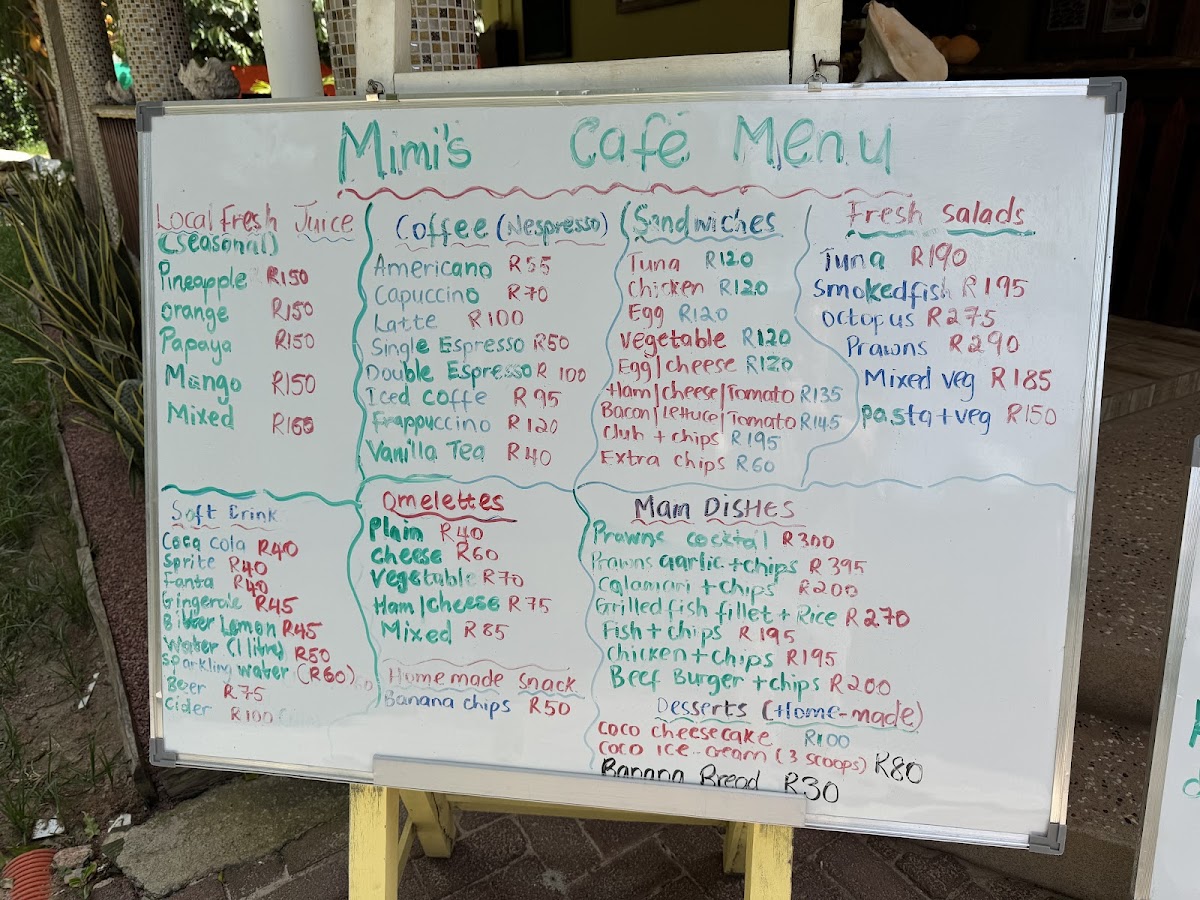 Mimi's Café Menu
Local Fresh Juice
(Seasonal)
Pineapple R150
Orange R150
Papaya R150
Mango R150
Mixed
Coffee (Nespresso)
Americano R55
Capuccino R70
Latte R100
Single Espresso R50
Double Espresso R 100
Iced coffe R 95
Frappuccino R 120
Vanilla Tea R40
Sandwiches
Tuna R120
Chicken R120
Egg R120
Vegetable R120
Egg/cheese R120
Ham/cheese/Tomato R135
Bacon/Lettuce/Tomato R145
Club + chips R195
Extra chips R60
Fresh Salads
Tuna R190
Smokedfish R195
Octopus R275
Prawns R290
Mixed veg R185
Pasta+veg R150
Soft Drink
Coca cola R40
Sprite R40
Fanta R40
Gingerale R45
Bitter Lemon R45
Water (1 litre) R50
Sparkling water (R60)
Beer R75
Cider R100
Omelettes
Plain R40
Cheese R60
Vegetable R70
Ham/cheese R75
Mixed R85
Home made Snack
Banana chips R50
Main Dishes
Prawns cocktail R300
Prawns garlic+chips R395
Calamari + chips R200
Grilled fish fillet + Rice R270
Fish + chips R195
Chicken+chips R195
Beef Burger +chips R200
Desserts (Home-made)
Coco cheesecake R100
Coco ice-cream (3 scoops) R80
Banana Bread R30